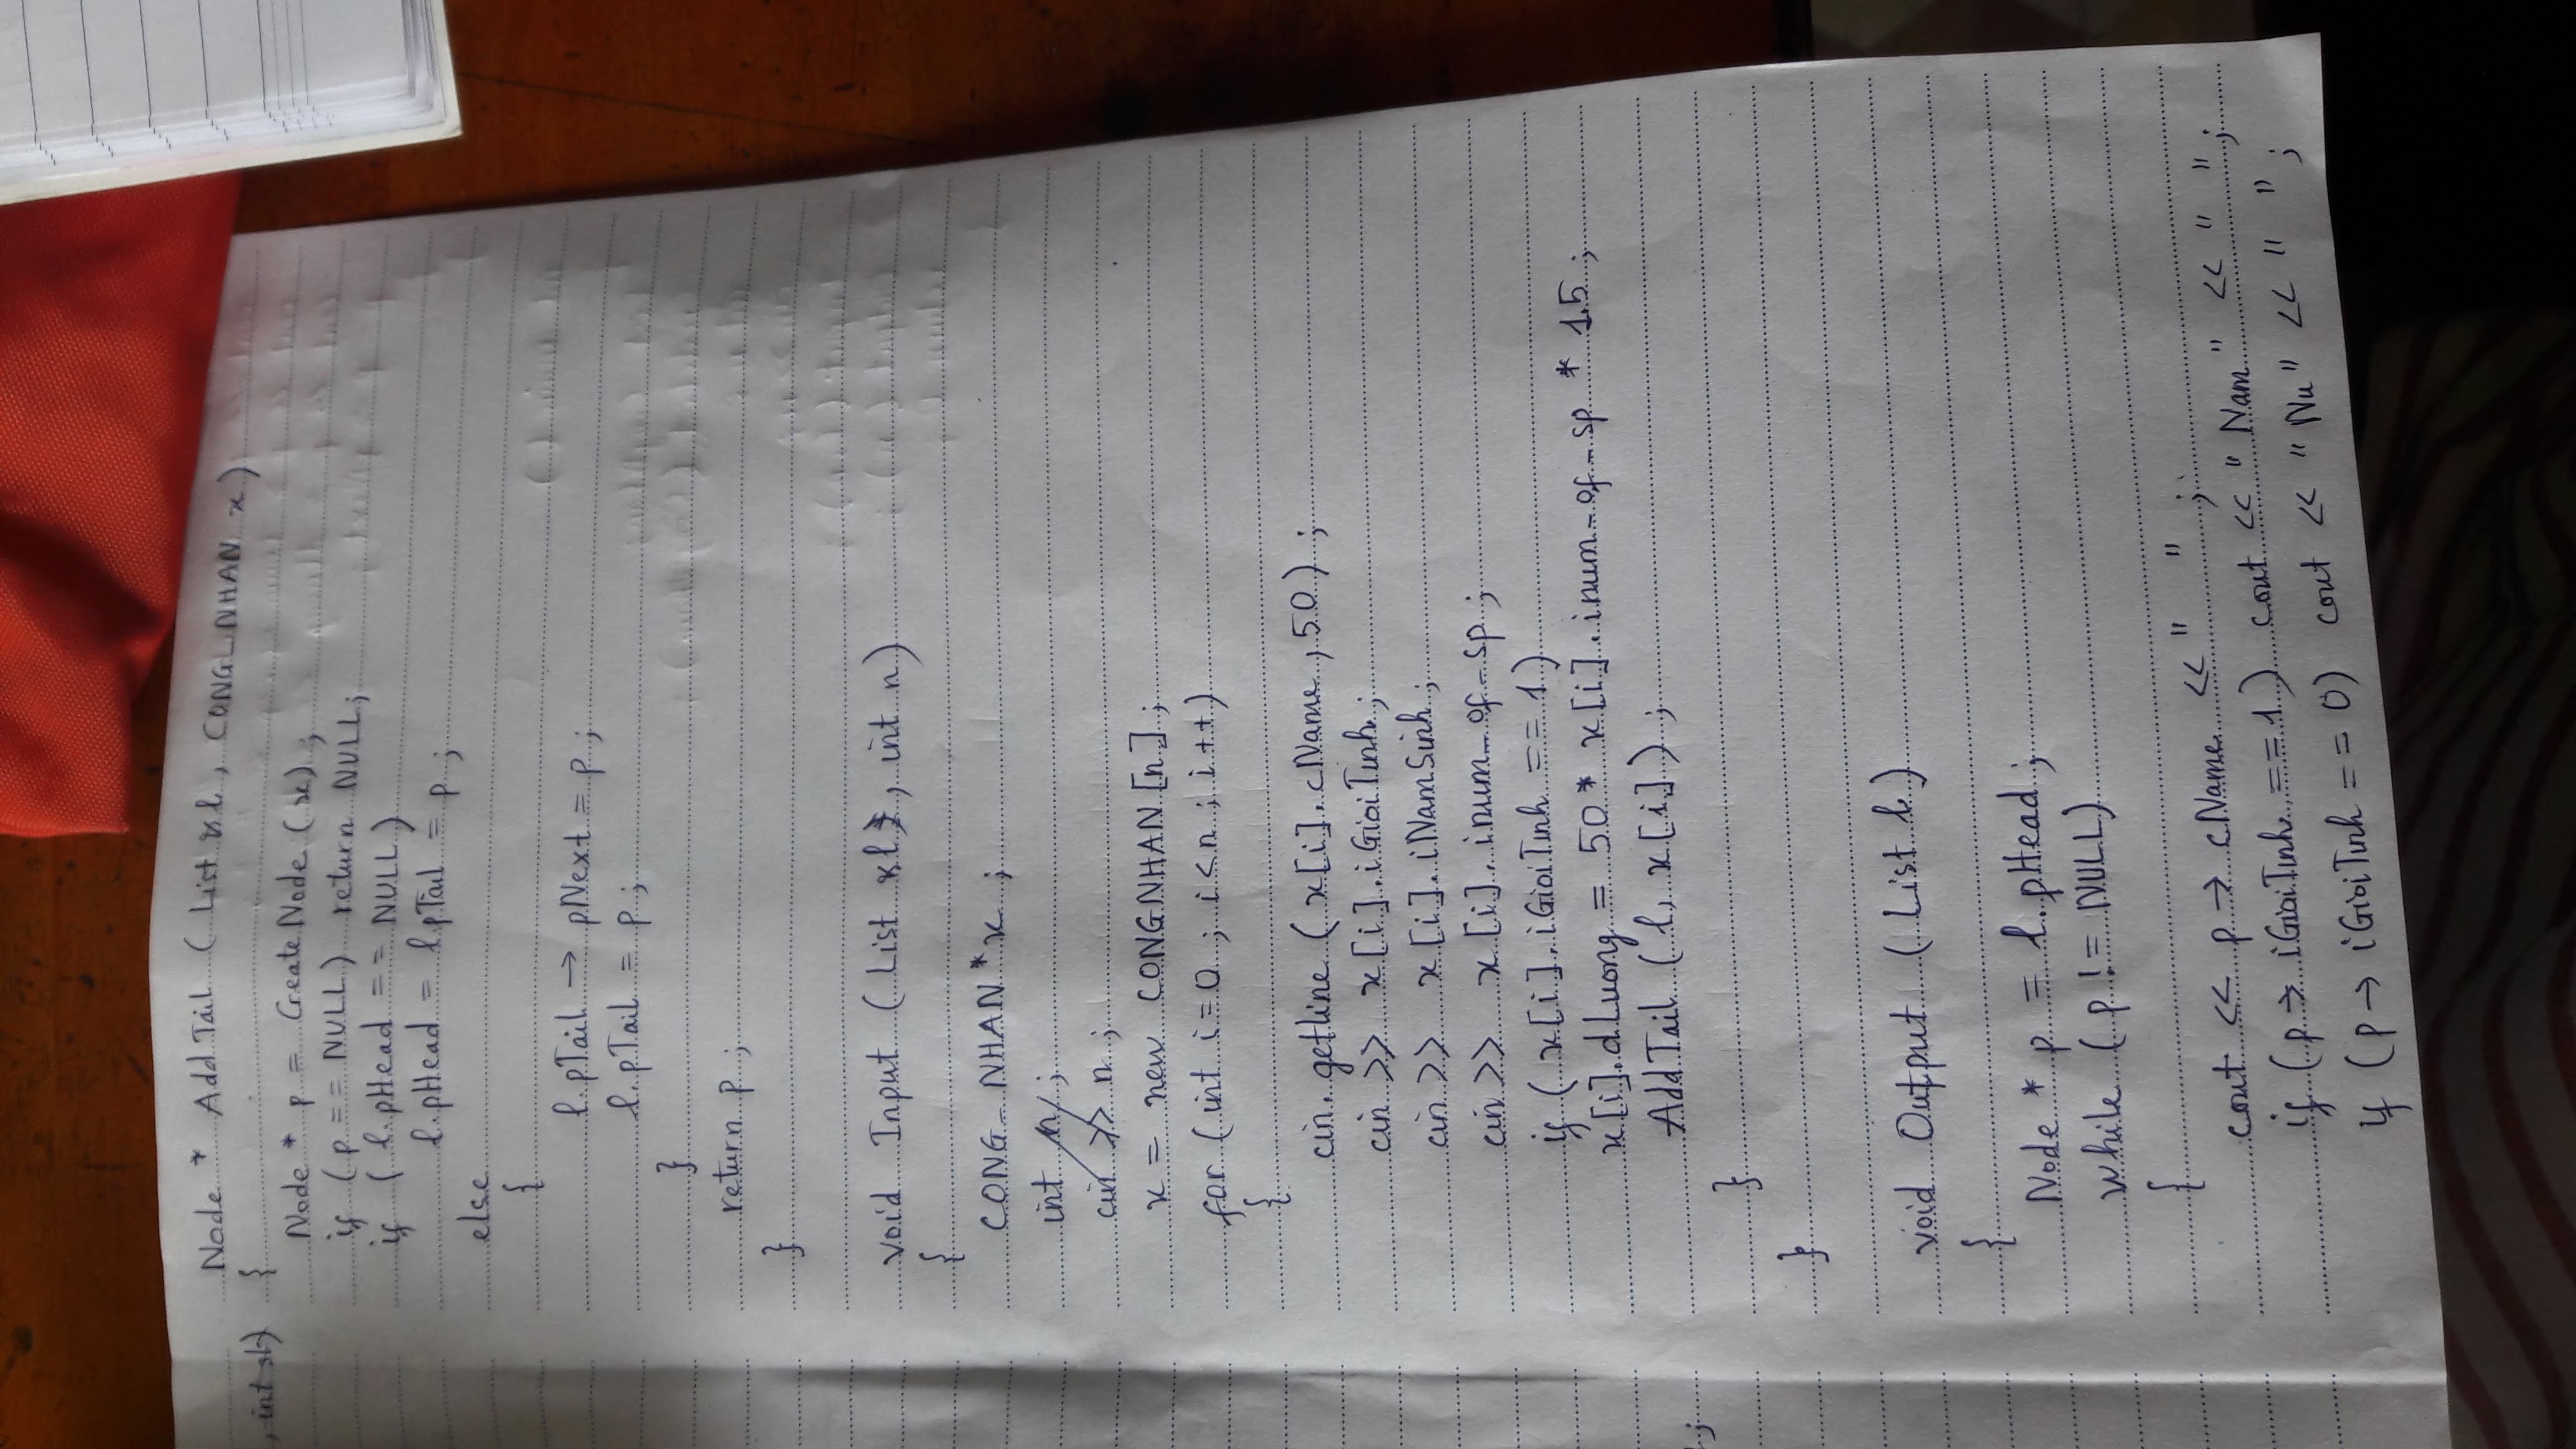 Node * AddTail ( List &l , CONG_NHAN x )
, int sl)
{
Node * p = CreateNode ( x ) ;
if ( p == NULL ) return NULL ;
if ( l.pHead == NULL )
l.pHead = l.pTail = p ;
else
{
l.pTail → pNext = p ;
l.pTail = p ;
}
return p ;
}
void Input ( List &l , int n )
{
CONG_NHAN * x ;
int n ;
cin >> n ;
x = new CONGNHAN [n] ;
for ( int i=0 ; i<n ; i++ )
{
cin.getline ( x[i].cName , 50 ) ;
cin >> x[i].iGioiTinh ;
cin >> x[i].iNamSinh ;
cin >> x[i].inum_of_sp ;
if ( x[i].iGioiTinh == 1 )
x[i].dLuong = 50 * x[i].inum_of_sp * 1.5 ;
AddTail ( l, x[i] ) ;
}
}
void Output ( List l )
{
Node * p = l.pHead ;
while ( p != NULL )
{
cout << p → cName << " " ;
if ( p → iGioiTinh == 1 ) cout << " Nam " << " " ;
if ( p → iGioiTinh == 0 ) cout << " Nu " << " " ;